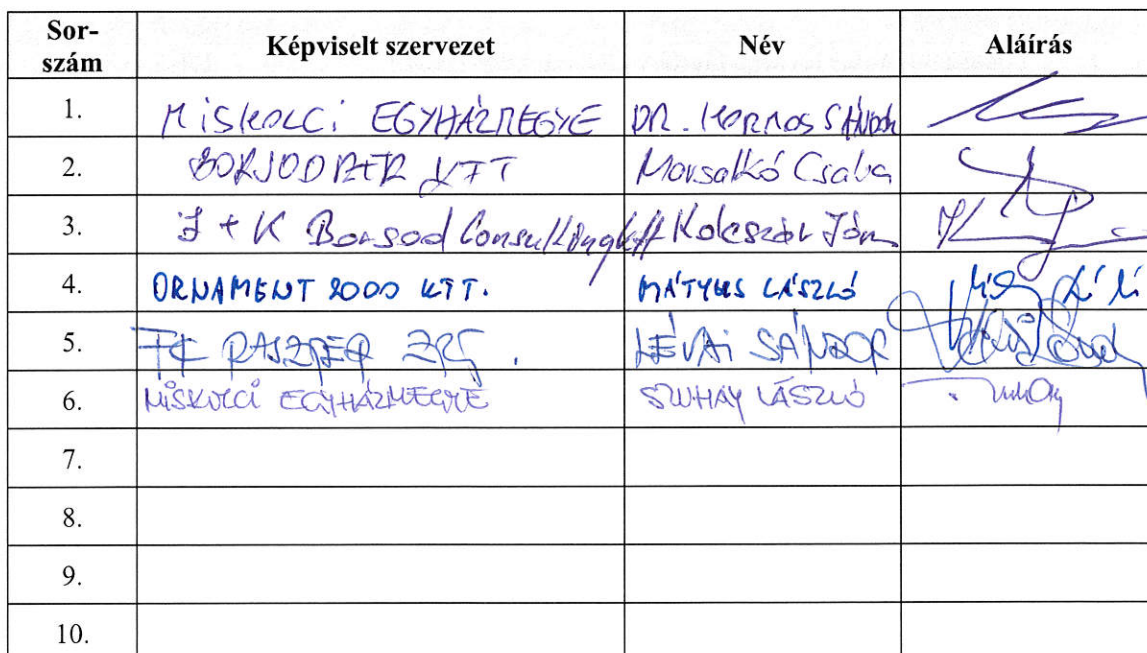 Sor-
szám Képviselt szervezet Név Aláírás
1. MISKOLCI EGYHÁZMEGYE DR. KORMOS SÁNDOR
2. KFT Morsalkó Csaba
3. J + K Borsod Consulting kft Kolcszár
4. ORNAMENT 2000 KFT. MÁTYUS LÁSZLÓ
5. ZRT. LÉVAI SÁNDOR
6. MISKOLCI EGYHÁZMEGYE SZUHAY LÁSZLÓ
7.
8.
9.
10.